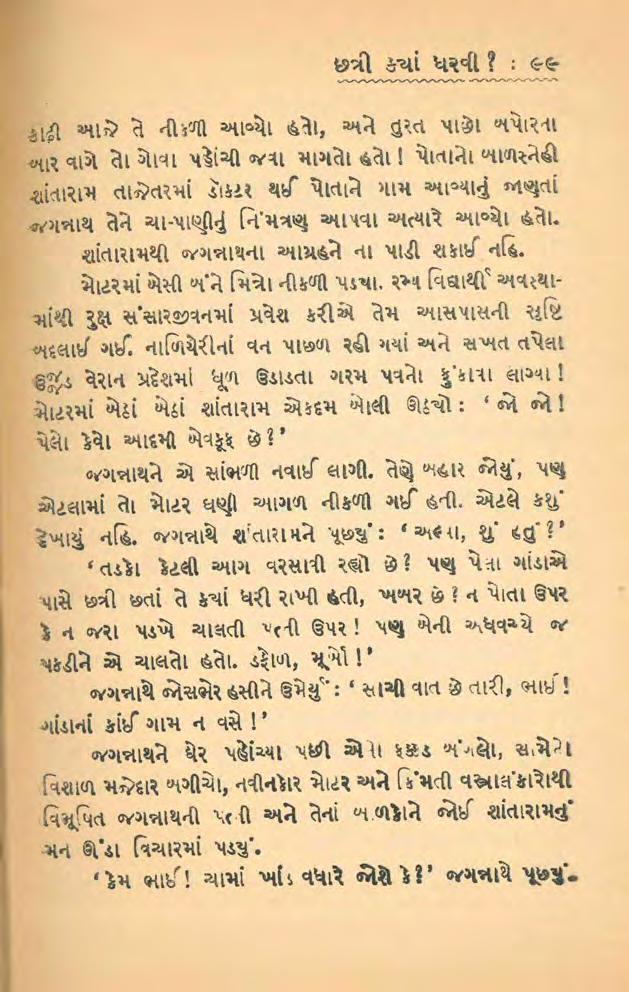 છત્રી ક્યાં ધરવી ? : ૯૯
કાઢી આજે તે નીકળી આવ્યો હતો, અને તુરત પાછો બપોરના
બાર વાગે તો ગોવા પહોંચી જવા માગતો હતો ! પોતાનો બાળસ્નેહી
શાંતારામ તાજેતરમાં ડૉક્ટર થઈ પોતાને ગામ આવ્યાનું જાણતાં
જગન્નાથ તેને ચા-પાણીનું નિમંત્રણ આપવા અત્યારે આવ્યો હતો.
શાંતારામથી જગન્નાથના આગ્રહને ના પાડી શકાઈ નહિ.
મોટરમાં બેસી બંને મિત્રો નીકળી પડ્યા. રમ્ય વિદ્યાર્થી અવસ્થા-
માંથી રુક્ષ સંસારજીવનમાં પ્રવેશ કરીએ તેમ આસપાસની સૃષ્ટિ
બદલાઈ ગઈ. નાળિયેરીનાં વન પાછળ રહી ગયાં અને સખત તપેલા
ઉજ્જડ વેરાન પ્રદેશમાં ધૂળ ઉડાડતા ગરમ પવનો ફુંકાવા લાગ્યા !
મોટરમાં બેઠાં બેઠાં શાંતારામ એકદમ બોલી ઊઠ્યો : ‘ જો જો !
પેલો કેવો આદમી બેવકૂફ છે ? ’
જગન્નાથને એ સાંભળી નવાઈ લાગી. તેણે બહાર જોયું, પણ
એટલામાં તો મોટર ઘણી આગળ નીકળી ગઈ હતી. એટલે કશું
દેખાયું નહિ. જગન્નાથે શાંતારામને પૂછ્યું : ‘ અલ્યા, શું હતું ? ’
‘ તડકો કેટલી આગ વરસાવી રહ્યો છે ? પણ પેલા ગાંડાએ
પાસે છત્રી છતાં તે ક્યાં ધરી રાખી હતી, ખબર છે ? ન પોતા ઉપર
કે ન જરા પડખે ચાલતી પત્ની ઉપર ! પણ બેની અધવચ્ચે જ
પકડીને એ ચાલતો હતો. ડફોળ, મૂર્ખો ! ’
જગન્નાથે જોસભેર હસીને ઉમેર્યું : ‘ સાચી વાત છે તારી, ભાઈ !
ગાંડાનાં કાંઈ ગામ ન વસે ! ’
જગન્નાથને ઘેર પહોંચ્યા પછી એનો ફક્કડ બંગલો, સામેનો
વિશાળ મજેદાર બગીચો, નવીનકોર મોટર અને કિંમતી વસ્ત્રાલંકારોથી
વિભૂષિત જગન્નાથની પત્ની અને તેનાં બાળકોને જોઈ શાંતારામનું
મન ઊંડા વિચારમાં પડ્યું.
‘ કેમ ભાઈ ! ચામાં ખાંડ વધારે જોશે કે ? ’ જગન્નાથે પૂછ્યું.